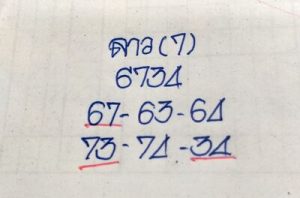 ลาว(7)
6734
67-63-64
73-74-34